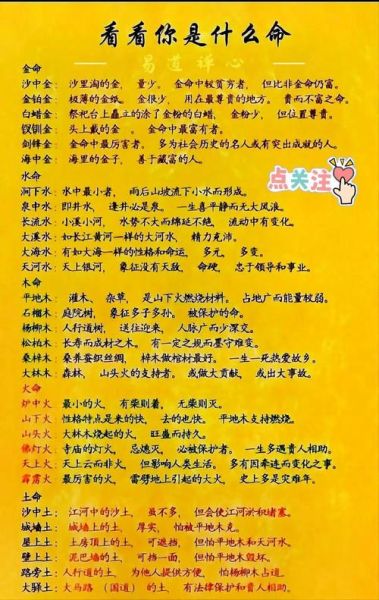 看看你是什么命
易道禅心
金命
沙中金：沙里淘的金，量少。金命中较贫穷者，但比非金命仍富。
金铂金：极薄的金纸。金很少，用在最尊贵的地方。贵而不富之命。
白蜡金：祭祀台上矗立的涂了金粉的白蜡，金粉少，但位置尊贵。
钗钏金：头上戴的金。金命中最富有者。
剑锋金：金命中最厉害者。多为社会历史的名人或有突出成就的人。
海中金：海里的金子，善于藏富的人。
点关注
水命
涧下水：水中最小者，雨后山坡流下小水而形成。
泉中水：即井水，逢井必是泉。一生喜平静而无大风浪。
长流水：小溪小河，水势不大而绵延不绝，流动中有变化。
大溪水：如长江黄河一样的大河水，精力充沛。
大海水：有如大海一样的性格和命运，多元，多变。
天河水：天上银河，象征没有天敌，命硬，忠于领导和事业。
木命
平地木：灌木、杂草，是山下火燃烧材料。占地广而能量较弱。
石榴木：庭院树，象征多子多孙。被保护的命。
杨柳木：人行道树，送往迎来，人脉广而少深交。
松柏木：长寿而成材之木。有一定之规而墨守难变。
桑梓木：桑养蚕织丝绸，梓木做棺材最好。一生一死热爱故乡。
大林木：森林，山头火的支持者。或做大贡献，或出大事故。
火命
炉中火：最小的火，有柴则着，无柴则灭。
山下火：性格特点是来的快，去的也快。平地木支持燃烧。
山头火：大林木烧起的火，旺盛而持久。
佛灯火：寺庙的灯火，忌熄灭，必被保护者。一生多遇贵人相助。
天上火：天上云而非火，但影响人类生活。多有因牵连而变化之事。
霹雳火：最厉害的火，雷劈地上引起的大火，史上多是灾难年。
土命
沙中土：江河中的沙土，虽不多，但会使江河淤积堵塞。
城墙土：城墙上的土，厚实，怕被平地木克。
屋上土：土房顶上的土，可遮挡，但怕平地木和天河水。
壁上土：泥巴墙的土，可挡一面，但怕平地木毁坏。
路旁土：人行道的土，为他人提供方便，怕杨柳木占道。
大驿土：大马路（国道）的土，有法律保护和贵人相助。